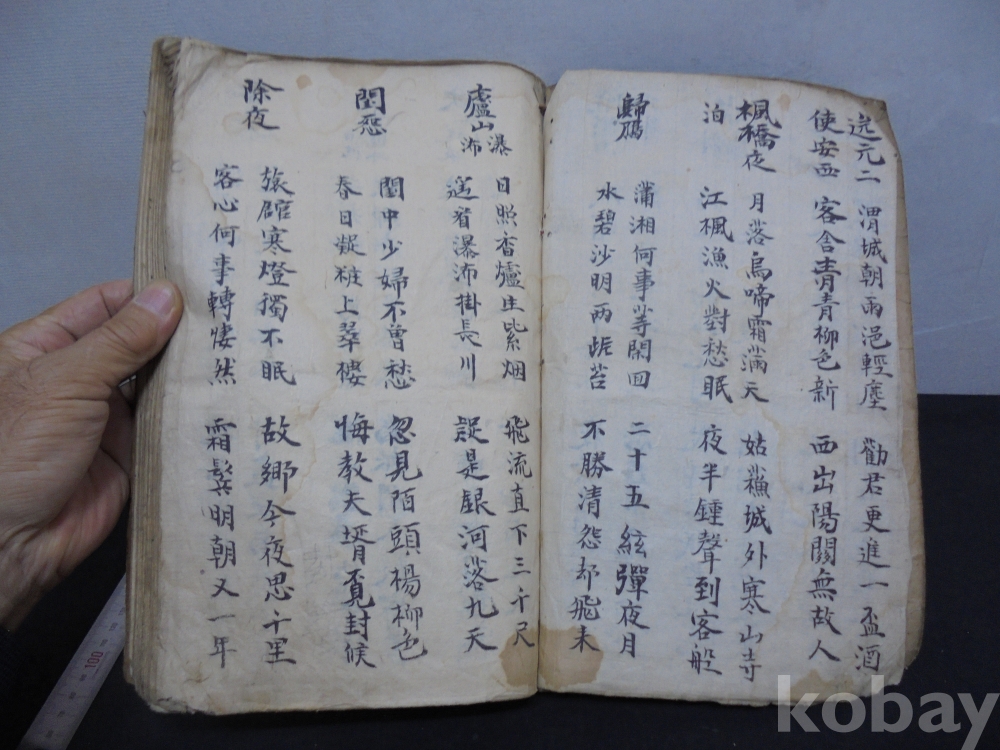 送元二
使安西
渭城朝雨浥輕塵
客舍青青柳色新
勸君更進一盃酒
西出陽關無故人
楓橋夜
泊
月落烏啼霜滿天
江楓漁火對愁眠
姑蘇城外寒山寺
夜半鍾聲到客般
歸鴈
瀟湘何事等閑回
水碧沙明兩岸苔
二十五絃彈夜月
不勝清怨却飛来
廬山瀑
沛
日照香爐生紫烟
遙看瀑沛掛長川
飛流直下三千尺
是銀河落九天
閨怨
閨中少婦不曾愁
春日凝粧上翠樓
忽見陌頭楊柳色
悔教夫壻覓封候
除夜
旅館寒燈獨不眠
客心何事轉悽然
故鄉今夜思千里
霜鬂明朝又一年
100
kobay